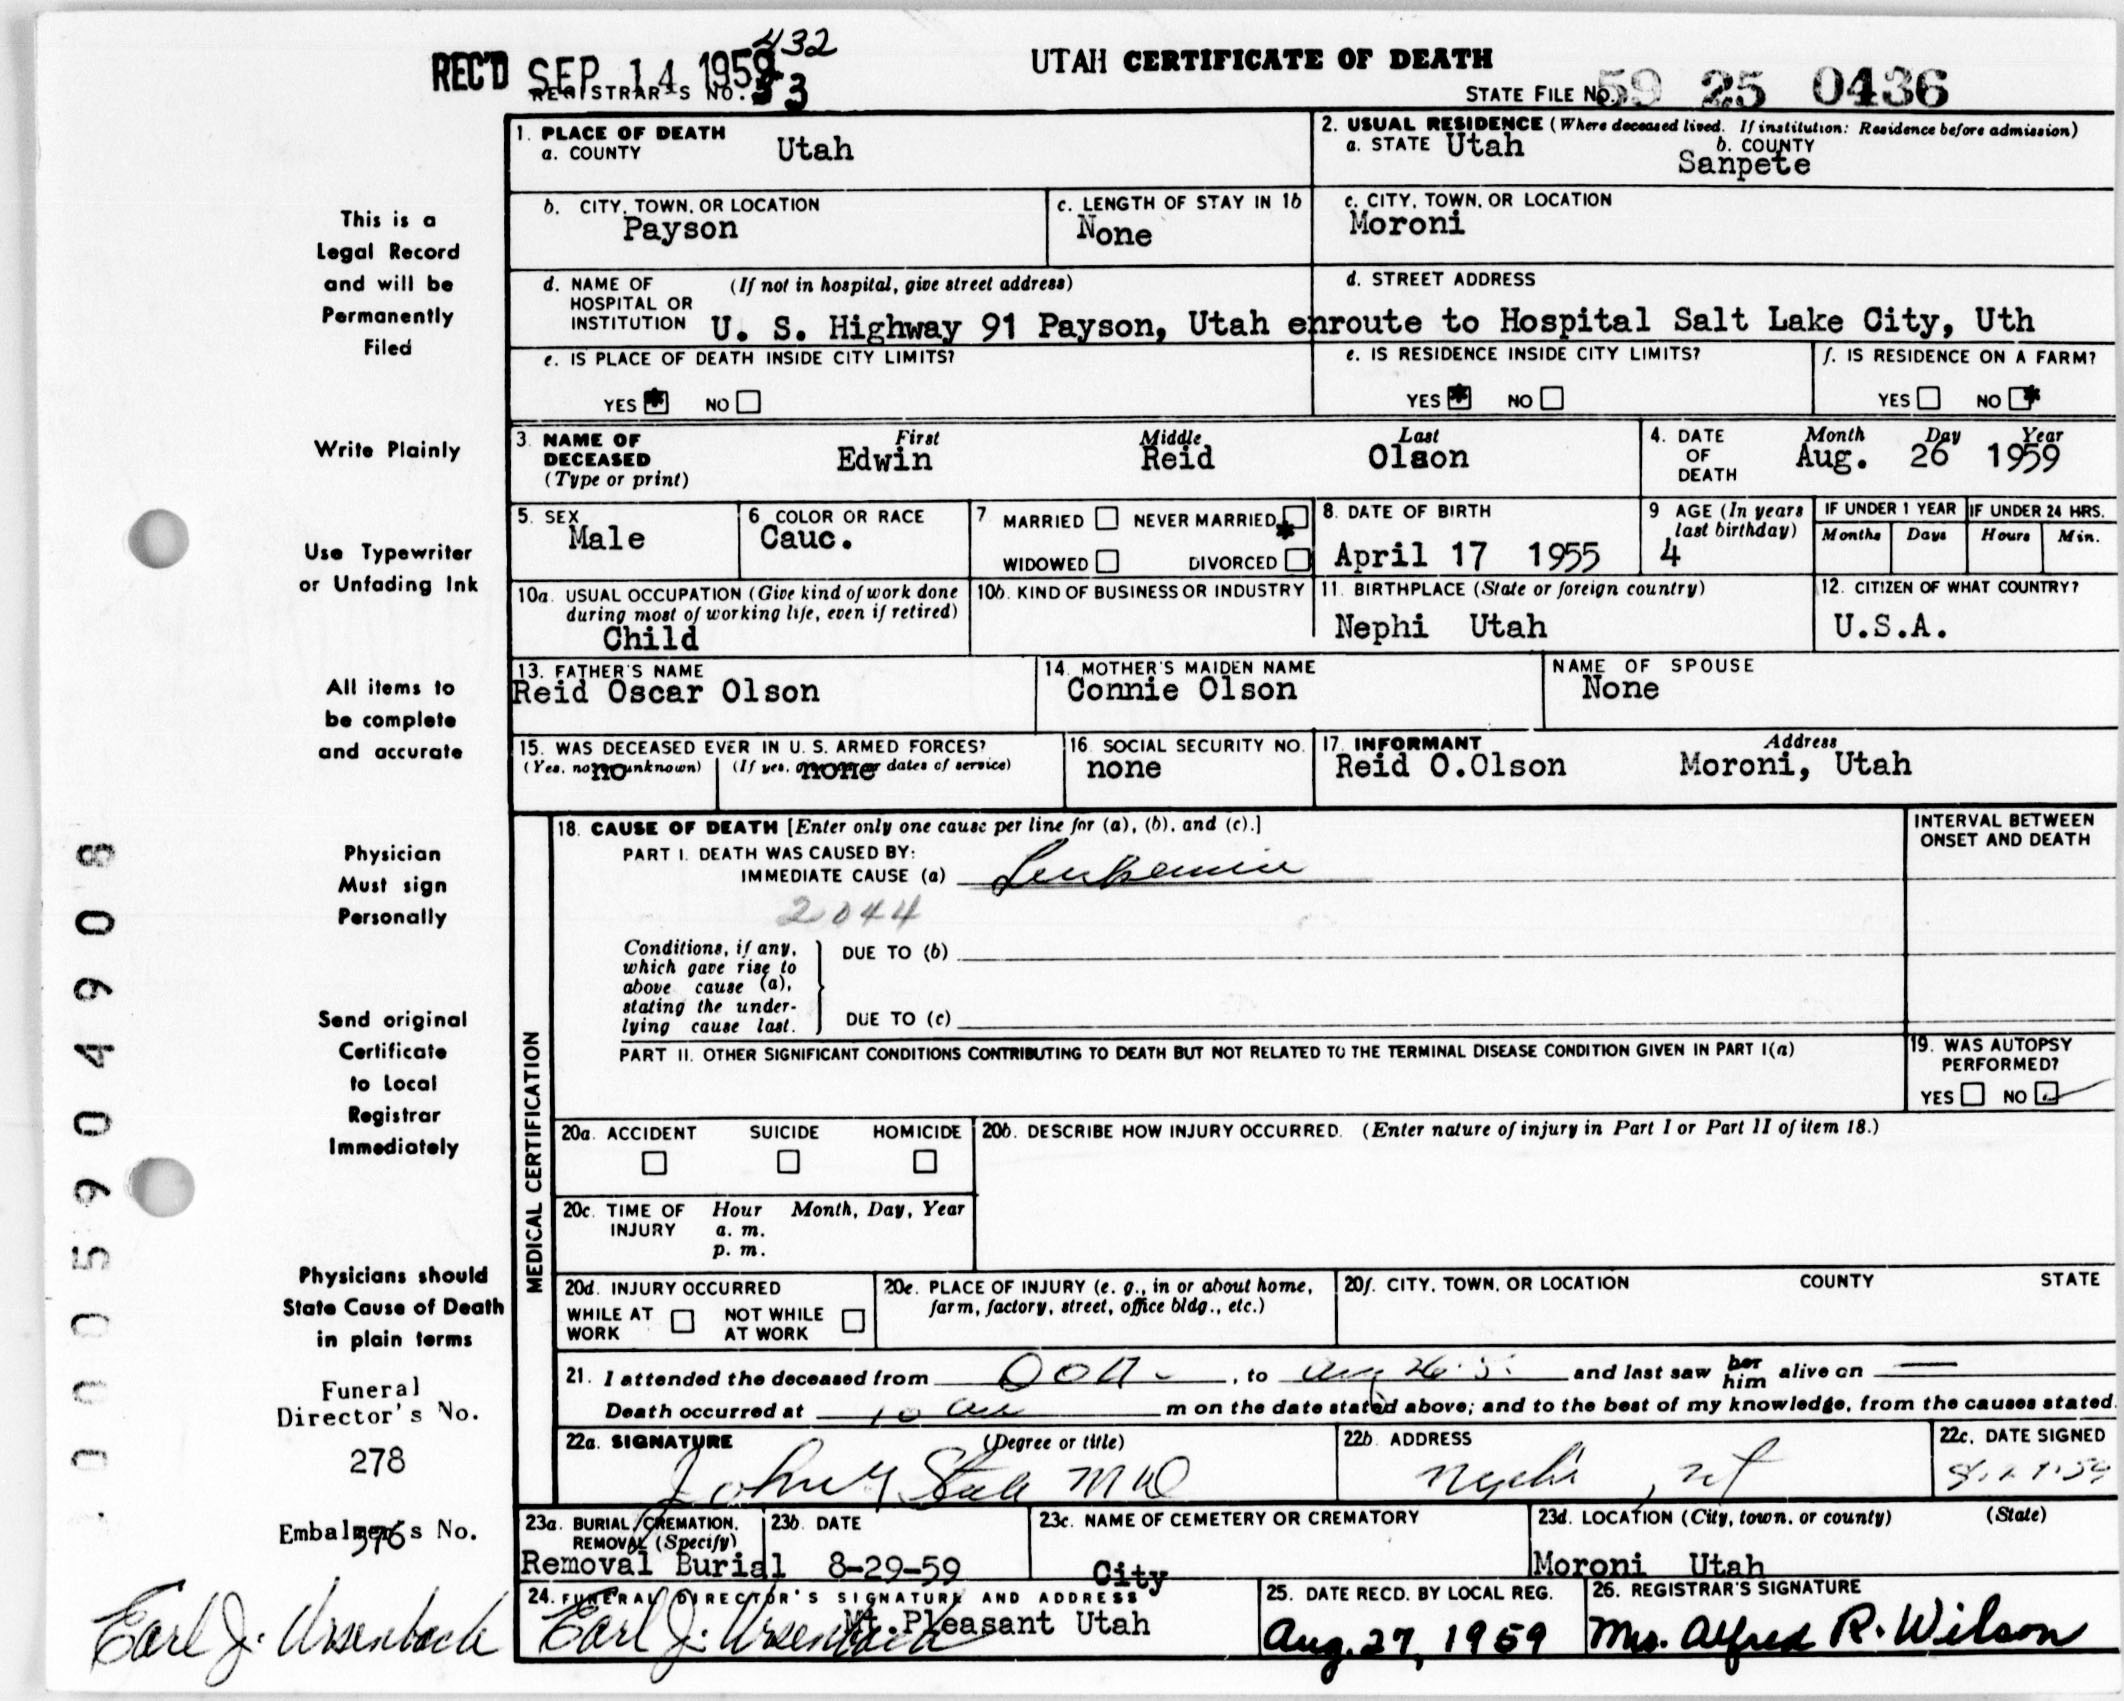 432
REC'D SEP 14 1959
UTAH CERTIFICATE OF DEATH
REGISTRAR'S NO. 33
STATE FILE NO. 59 25 0436
1. PLACE OF DEATH
a. COUNTY Utah
2. USUAL RESIDENCE (Where deceased lived. If institution: Residence before admission)
a. STATE Utah b. COUNTY Sanpete
b. CITY, TOWN, OR LOCATION Payson
c. LENGTH OF STAY IN 1b None
c. CITY, TOWN, OR LOCATION Moroni
d. NAME OF HOSPITAL OR INSTITUTION (If not in hospital, give street address)
d. STREET ADDRESS
U. S. Highway 91 Payson, Utah enroute to Hospital Salt Lake City, Uth
e. IS PLACE OF DEATH INSIDE CITY LIMITS?
YES NO
e. IS RESIDENCE INSIDE CITY LIMITS?
YES NO
f. IS RESIDENCE ON A FARM?
YES NO
3. NAME OF DECEASED (Type or print)
First Middle Last
Edwin Reid Olson
4. DATE OF DEATH
Month Day Year
Aug. 26 1959
5. SEX Male
6. COLOR OR RACE Cauc.
7. MARRIED NEVER MARRIED
WIDOWED DIVORCED
8. DATE OF BIRTH
April 17 1955
9 AGE (In years last birthday) 4
IF UNDER 1 YEAR
Months Days
IF UNDER 24 HRS.
Hours Min.
10a. USUAL OCCUPATION (Give kind of work done during most of working life, even if retired)
Child
10b. KIND OF BUSINESS OR INDUSTRY
11. BIRTHPLACE (State or foreign country)
Nephi Utah
12. CITIZEN OF WHAT COUNTRY?
U.S.A.
13. FATHER'S NAME
Reid Oscar Olson
14. MOTHER'S MAIDEN NAME
Connie Olson
NAME OF SPOUSE
None
15. WAS DECEASED EVER IN U. S. ARMED FORCES?
(Yes, no, or unknown) no
(If yes, give war or dates of service) none
16. SOCIAL SECURITY NO.
none
17. INFORMANT Address
Reid O.Olson Moroni, Utah
MEDICAL CERTIFICATION
18. CAUSE OF DEATH [Enter only one cause per line for (a), (b), and (c).]
INTERVAL BETWEEN ONSET AND DEATH
PART I. DEATH WAS CAUSED BY:
IMMEDIATE CAUSE (a) Leukemia
2044
Conditions, if any, which gave rise to above cause (a), stating the underlying cause last.
DUE TO (b)
DUE TO (c)
PART II. OTHER SIGNIFICANT CONDITIONS CONTRIBUTING TO DEATH BUT NOT RELATED TO THE TERMINAL DISEASE CONDITION GIVEN IN PART I(a)
19. WAS AUTOPSY PERFORMED?
YES NO
20a. ACCIDENT SUICIDE HOMICIDE
20b. DESCRIBE HOW INJURY OCCURRED. (Enter nature of injury in Part I or Part II of item 18.)
20c. TIME OF INJURY Hour Month, Day, Year
a. m.
p. m.
20d. INJURY OCCURRED
WHILE AT WORK NOT WHILE AT WORK
20e. PLACE OF INJURY (e. g., in or about home, farm, factory, street, office bldg., etc.)
20f. CITY, TOWN, OR LOCATION COUNTY STATE
21. I attended the deceased from , to Aug 26 and last saw her him alive on
Death occurred at 10 m on the date stated above; and to the best of my knowledge, from the causes stated.
22a. SIGNATURE (Degree or title)
John MD
22b. ADDRESS
Nephi, Ut
22c. DATE SIGNED
23a. BURIAL, CREMATION, REMOVAL (Specify)
Removal Burial
23b. DATE
8-29-59
23c. NAME OF CEMETERY OR CREMATORY
City
23d. LOCATION (City, town, or county) (State)
Moroni Utah
24. FUNERAL DIRECTOR'S SIGNATURE AND ADDRESS
Earl J. Ursenbach Mt. Pleasant Utah
25. DATE RECD. BY LOCAL REG.
Aug. 27, 1959
26. REGISTRAR'S SIGNATURE
Mrs. Alfred R. Wilson
This is a
Legal Record
and will be
Permanently
Filed
Write Plainly
Use Typewriter
or Unfading Ink
All items to
be complete
and accurate
Physician
Must sign
Personally
Send original
Certificate
to Local
Registrar
Immediately
Physicians should
State Cause of Death
in plain terms
Funeral
Director's No.
278
Embalmer's No.
376
Earl J. Ursenbach
0005904908